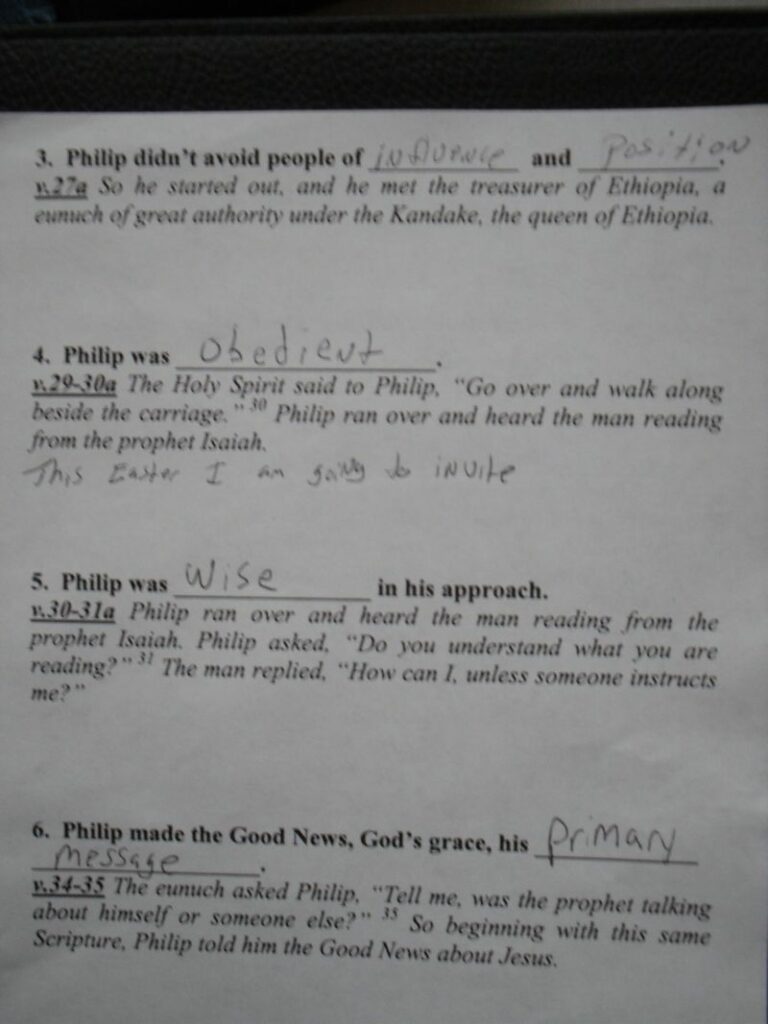 3. Philip didn't avoid people of influence and Position,
v.27a So he started out, and he met the treasurer of Ethiopia, a
eunuch of great authority under the Kandake, the queen of Ethiopia.
4. Philip was obedient.
v.29-30a The Holy Spirit said to Philip, "Go over and walk along
beside the carriage." 30 Philip ran over and heard the man reading
from the prophet Isaiah.
This Easter I am going to invite
5. Philip was Wise in his approach.
v.30-31a Philip ran over and heard the man reading from the
prophet Isaiah. Philip asked, "Do you understand what you are
reading?" 31 The man replied, "How can I, unless someone instructs
me?"
6. Philip made the Good News, God's grace, his primary
message.
v.34-35 The eunuch asked Philip, "Tell me, was the prophet talking
about himself or someone else?" 35 So beginning with this same
Scripture, Philip told him the Good News about Jesus.